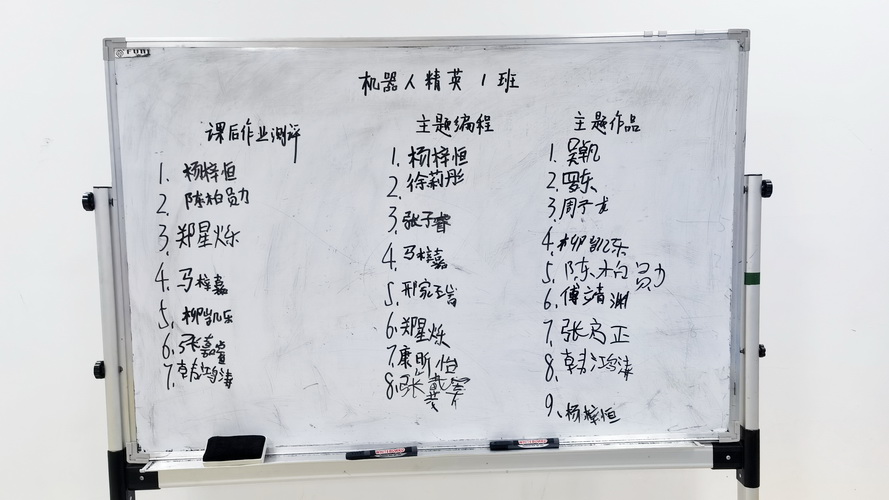 机器人精英1班
课后作业测评
1. 杨梓恒
2. 陈柏勋
3. 郑星烁
4. 马梓嘉
5. 柳凯乐
6. 张嘉睿
7. 韩鸿涛
主题编程
1. 杨梓恒
2. 徐莉彤
3. 张子睿
4. 马梓嘉
5. 邢家
6. 郑星烁
7. 康昕怡
8. 张戴
主题作品
1. 吴凯
2. 罗东
3. 周子龙
4. 柳凯乐
5. 陈柏勋
6. 傅靖渊
7. 张启正
8. 韩鸿涛
9. 杨梓恒